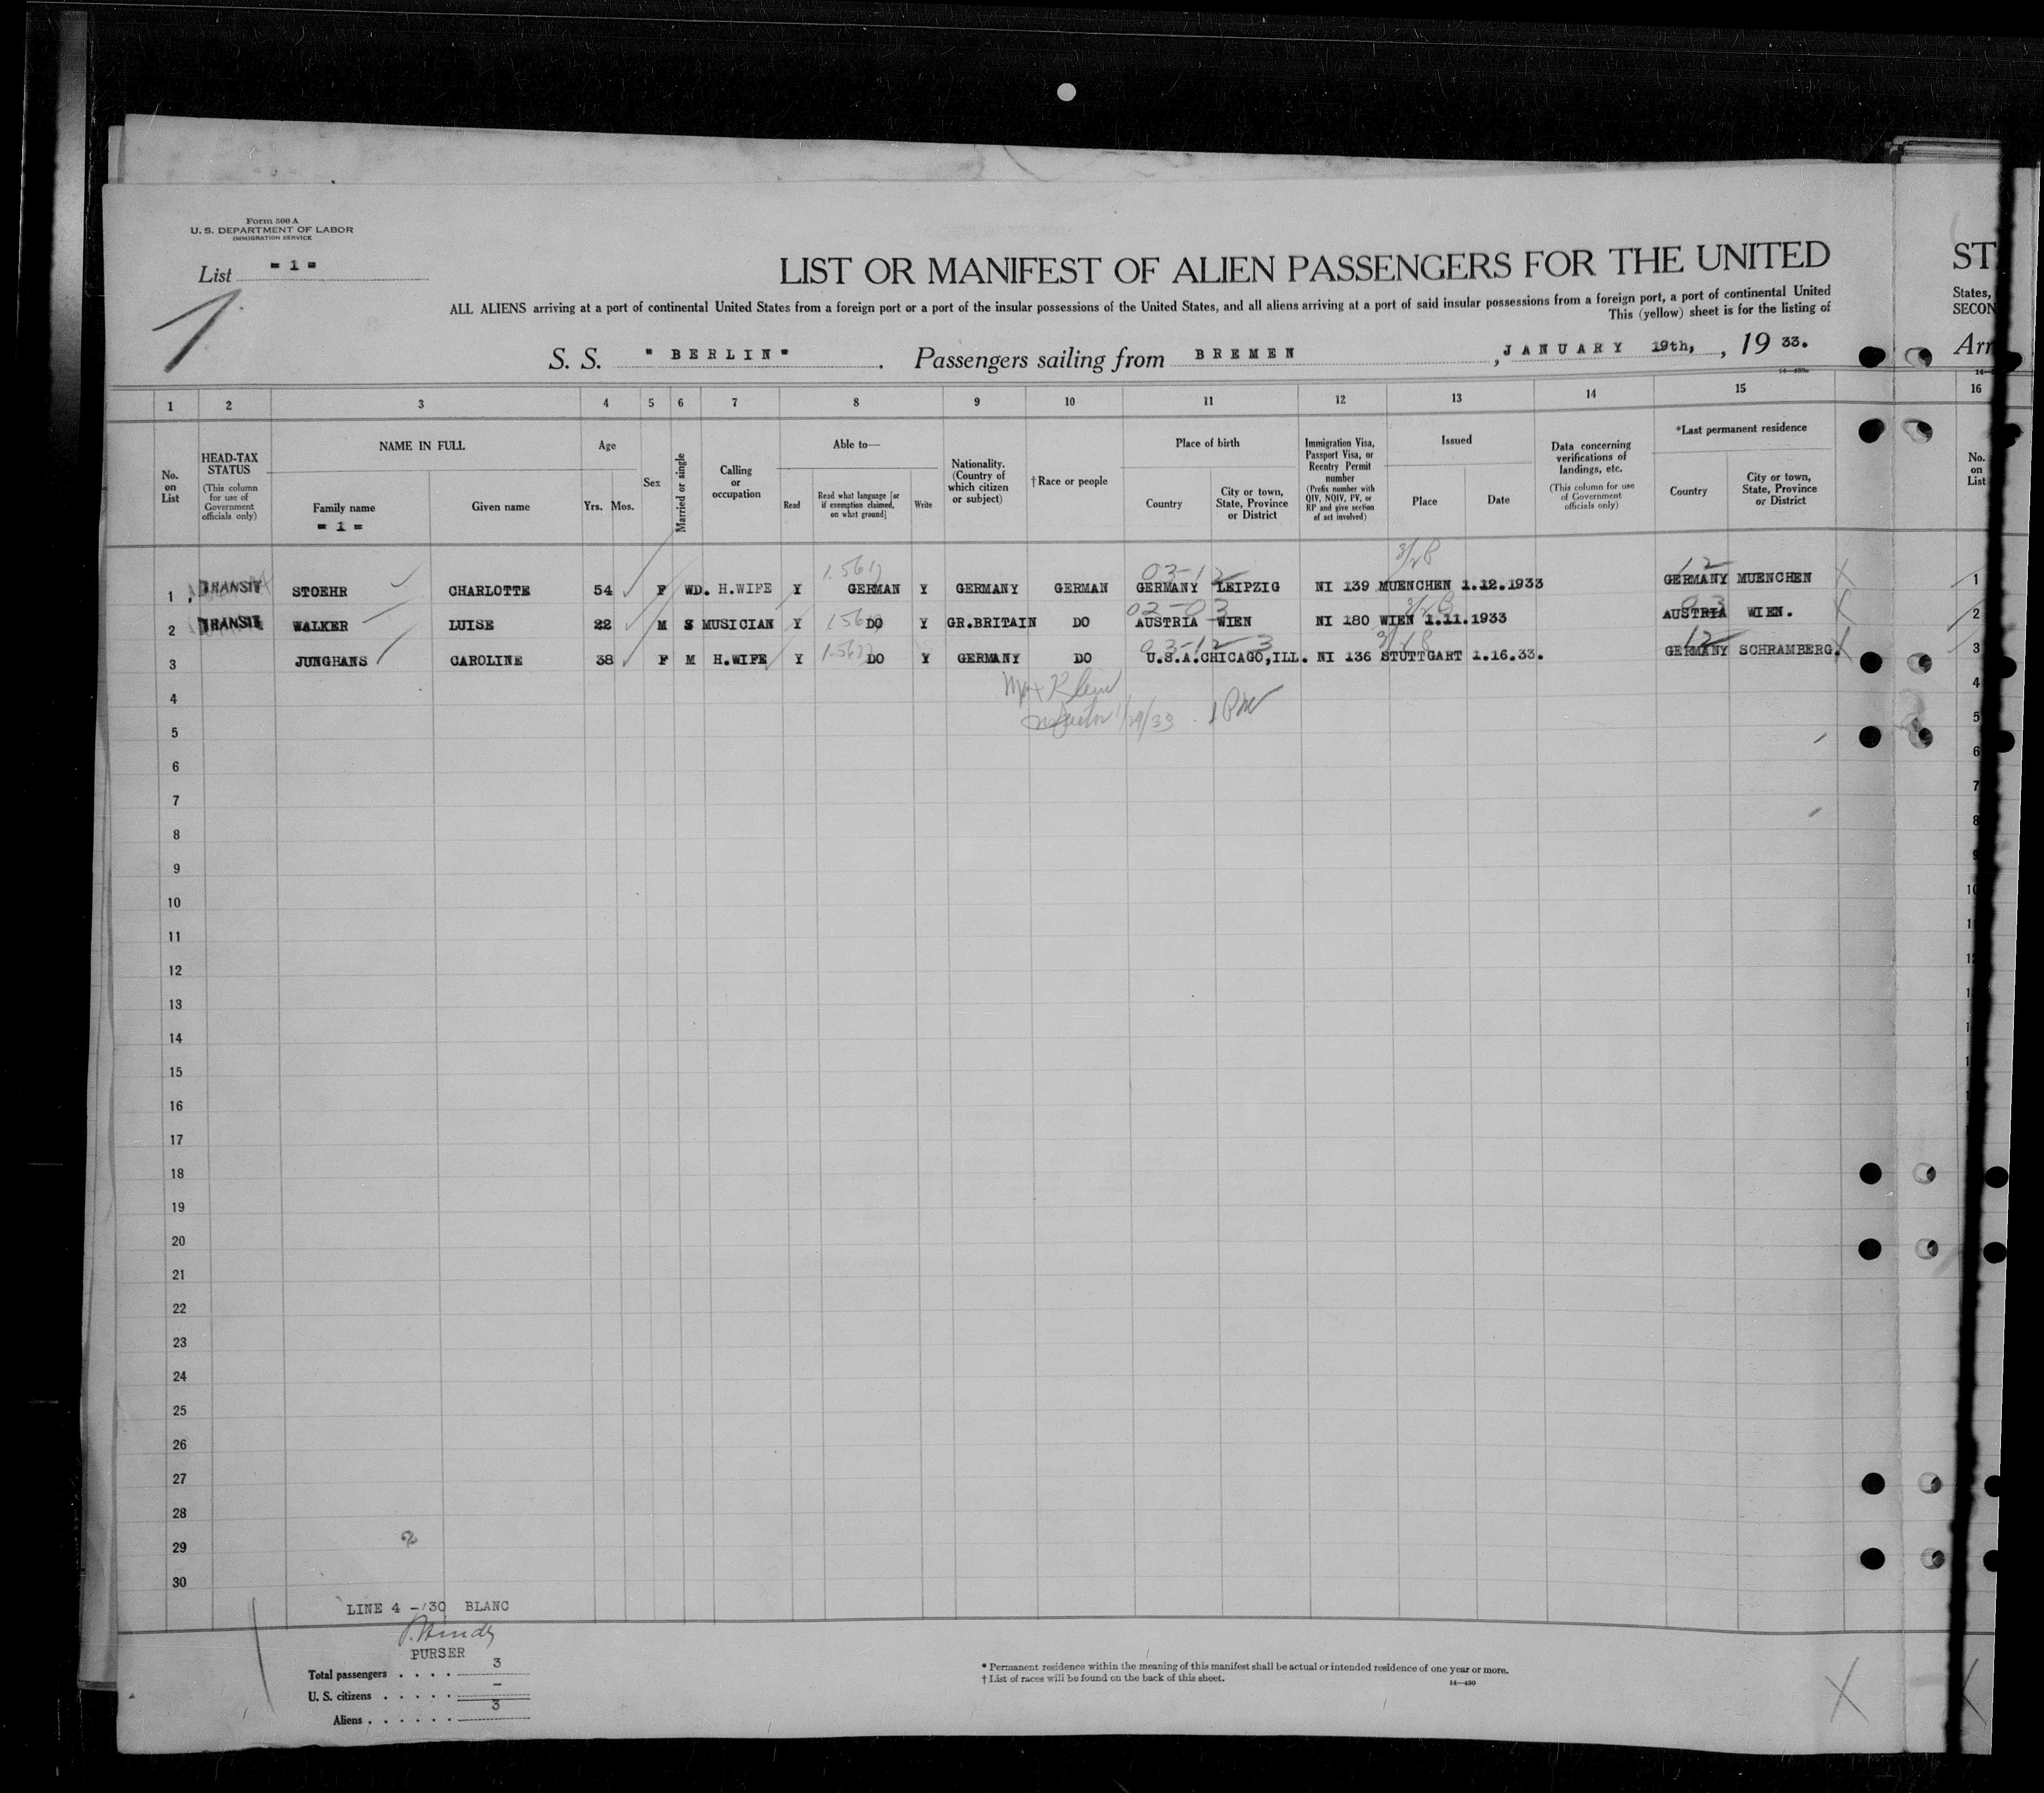 Form 500 A
U. S. DEPARTMENT OF LABOR
IMMIGRATION SERVICE
List - 1 -
1
LIST OR MANIFEST OF ALIEN PASSENGERS FOR THE UNITED
ST
ALL ALIENS arriving at a port of continental United States from a foreign port or a port of the insular possessions of the United States, and all aliens arriving at a port of said insular possessions from a foreign port, a port of continental United
States,
This (yellow) sheet is for the listing of
SECON
S. S. " BERLIN" . Passengers sailing from BREMEN , JANUARY 19th, , 19 33.
Arr
14—430
1 2 3 4 5 6 7 8 9 10 11 12 13 14 15 16
No. on List
HEAD-TAX STATUS
(This column for use of Government officials only)
NAME IN FULL
Family name
- 1 -
Given name
Age
Yrs. Mos.
Sex
Married or single
Calling or occupation
Able to—
Read
Read what language [or if exemption claimed, on what ground]
Write
Nationality. (Country of which citizen or subject)
† Race or people
Place of birth
Country
City or town, State, Province or District
Immigration Visa, Passport Visa, or Reentry Permit number
(Prefix number with QIV, NQIV, PV, or RP and give section of act involved)
Issued
Place
Date
Data concerning verifications of landings, etc.
(This column for use of Government officials only)
*Last permanent residence
Country
City or town, State, Province or District
No. on List
03-12 12
1 TRANSIT STOEHR CHARLOTTE 54 F WD. H.WIFE Y GERMAN Y GERMANY GERMAN GERMANY LEIPZIG NI 139 MUENCHEN 1.12.1933 GERMANY MUENCHEN 1
02-03 03
2 TRANSIT WALKER LUISE 22 M S MUSICIAN Y DO Y GR.BRITAIN DO AUSTRIA WIEN NI 180 WIEN 1.11.1933 AUSTRIA WIEN. 2
03-12 3 12
3 JUNGHANS CAROLINE 38 F M H.WIFE Y DO Y GERMANY DO U.S.A.CHICAGO,ILL. NI 136 STUTTGART 1.16.33. GERMANY SCHRAMBERG. 3
4 4
5 1/29/33 5
6 6
7 7
8 8
9 9
10 10
11
12
13
14
15
16
17
18
19
20
21
22
23
24
25
26
27
28
29
30
LINE 4 - 30 BLANC
PURSER
Total passengers . . . . 3
U. S. citizens . . . . . -
Aliens . . . . . . 3
* Permanent residence within the meaning of this manifest shall be actual or intended residence of one year or more.
† List of races will be found on the back of this sheet.
14—430